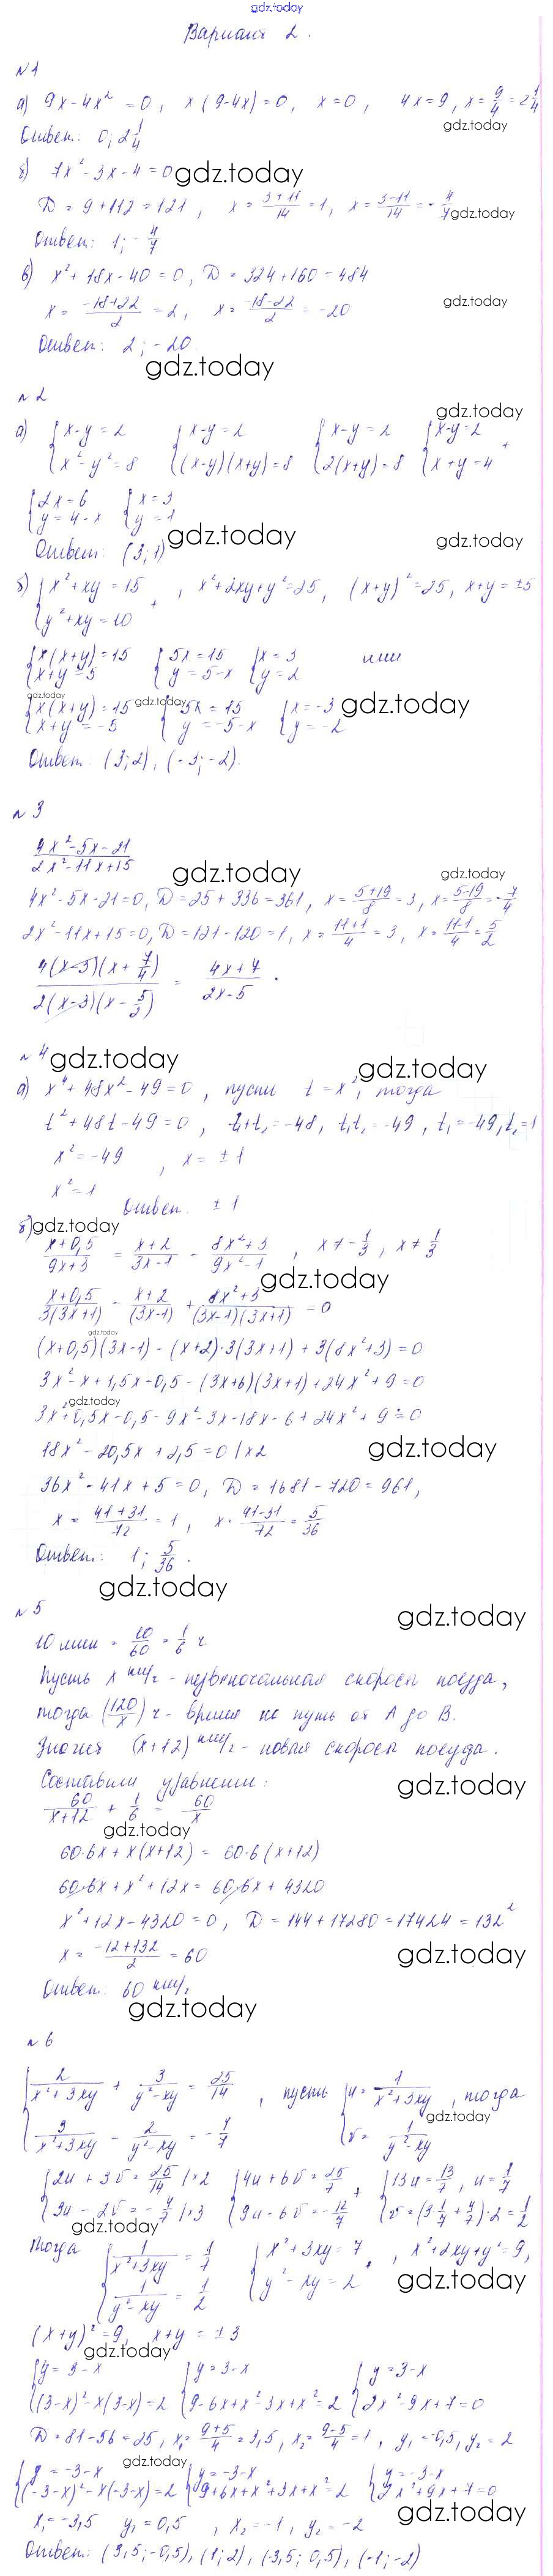 gdz.today
Вариант 2.
№1
а) 9x-4x²=0, x(9-4x)=0, x=0, 4x=9, x=9/4=2 1/4
gdz.today
Ответ: 0; 2 1/4
б) 7x²-3x-4=0
gdz.today
D=9+112=121, x=(3+11)/14=1, x=(3-11)/14=-4/7
gdz.today
Ответ: 1; -4/7
в) x²+18x-40=0, D=324+160=484
x=(-18+22)/2=2, x=(-18-22)/2=-20
gdz.today
Ответ: 2; -20.
gdz.today
№2
gdz.today
а) {x-y=2 {x-y=2 {x-y=2 {x-y=2 +
{x²-y²=8 {(x-y)(x+y)=8 {2(x+y)=8 {x+y=4
{2x=6 {x=3
{y=4-x {y=1
gdz.today
gdz.today
Ответ: (3; 1)
б) {x²+xy=15 +, x²+2xy+y²=25, (x+y)²=25, x+y=±5
{y²+xy=10
{x(x+y)=15 {5x=15 {x=3 или
{x+y=5 {y=5-x {y=2
gdz.today
gdz.today
{x(x+y)=15 {-5x=15 {x=-3
gdz.today
{x+y=-5 {y=-5-x {y=-2
Ответ: (3; 2), (-3; -2).
№3
(4x²-5x-21)/(2x²-11x+15)
gdz.today
gdz.today
4x²-5x-21=0, D=25+336=361, x=(5+19)/8=3, x=(5-19)/8=-7/4
2x²-11x+15=0, D=121-120=1, x=(11+1)/4=3, x=(11-1)/4=5/2
4(x-3)(x+7/4)/2(x-3)(x-5/3) = (4x+7)/(2x-5).
№4
gdz.today
gdz.today
а) x⁴+48x²-49=0, пусть t=x², тогда
t²+48t-49=0, t₁+t₂=-48, t₁t₂=-49, t₁=-49, t₂=1
x²=-49, x=±1
x²=1
Ответ. ±1
б)
gdz.today
(x+0,5)/(9x+3) = (x+2)/(3x-1) - (8x²+3)/(9x²-1), x≠-1/3, x≠1/3
gdz.today
(x+0,5)/3(3x+1) - (x+2)/(3x-1) + (8x²+3)/(3x-1)(3x+1) = 0
gdz.today
(x+0,5)(3x-1)-(x+2)·3(3x+1)+3(8x²+3)=0
3x²-x+1,5x-0,5-(3x+6)(3x+1)+24x²+9=0
gdz.today
3x²+0,5x-0,5-9x²-3x-18x-6+24x²+9=0
18x²-20,5x+2,5=0 |×2
gdz.today
36x²-41x+5=0, D=1681-720=961,
x=(41+31)/72=1, x=(41-31)/72=5/36
Ответ: 1; 5/36.
gdz.today
№5
gdz.today
10 мин = 10/60 = 1/6 ч
Пусть x км/ч - первоначальная скорость поезда,
тогда (120/x) ч - время на путь от A до B.
Значит (x+12) км/ч - новая скорость поезда.
Составим уравнение:
gdz.today
60/(x+12) + 1/6 = 60/x
gdz.today
60·6x+x(x+12)=60·6(x+12)
60·6x+x²+12x=60·6x+4320
x²+12x-4320=0, D=144+17280=17424=132²
x=(-12+132)/2=60
gdz.today
Ответ. 60 км/ч
gdz.today
№6
{2/(x²+3xy) + 3/(y²-xy) = 25/14, пусть {u=1/(x²+3xy), тогда
gdz.today
{3/(x²+3xy) - 2/(y²-xy) = -1/7 {v=1/(y²-xy)
{2u+3v=25/14 |×2 {4u+6v=25/7 + {13u=13/7, u=1/7
{3u-2v=-4/7 |×3 {9u-6v=-12/7 {v=(3 1/7+4/7)·2=1/2
gdz.today
Тогда {1/(x²+3xy)=1/7 {x²+3xy=7 +, x²+2xy+y²=9,
{1/(y²-xy)=1/2 {y²-xy=2
gdz.today
(x+y)²=9, x+y=±3
gdz.today
{y=3-x {y=3-x {y=3-x
{(3-x)²-x(3-x)=2 {9-6x+x²-3x+x²=2 {2x²-9x+7=0
D=81-56=25, x₁=(9+5)/4=3,5, x₂=(9-5)/4=1, y₁=-0,5, y₂=2
gdz.today
{y=-3-x {y=-3-x {y=-3-x
{(-3-x)²-x(-3-x)=2 {9+6x+x²+3x+x²=2 {2x²+9x+7=0
gdz.today
x₁=-3,5 y₁=0,5, x₂=-1, y₂=-2
Ответ: (3,5; -0,5), (1; 2), (-3,5; 0,5), (-1; -2)